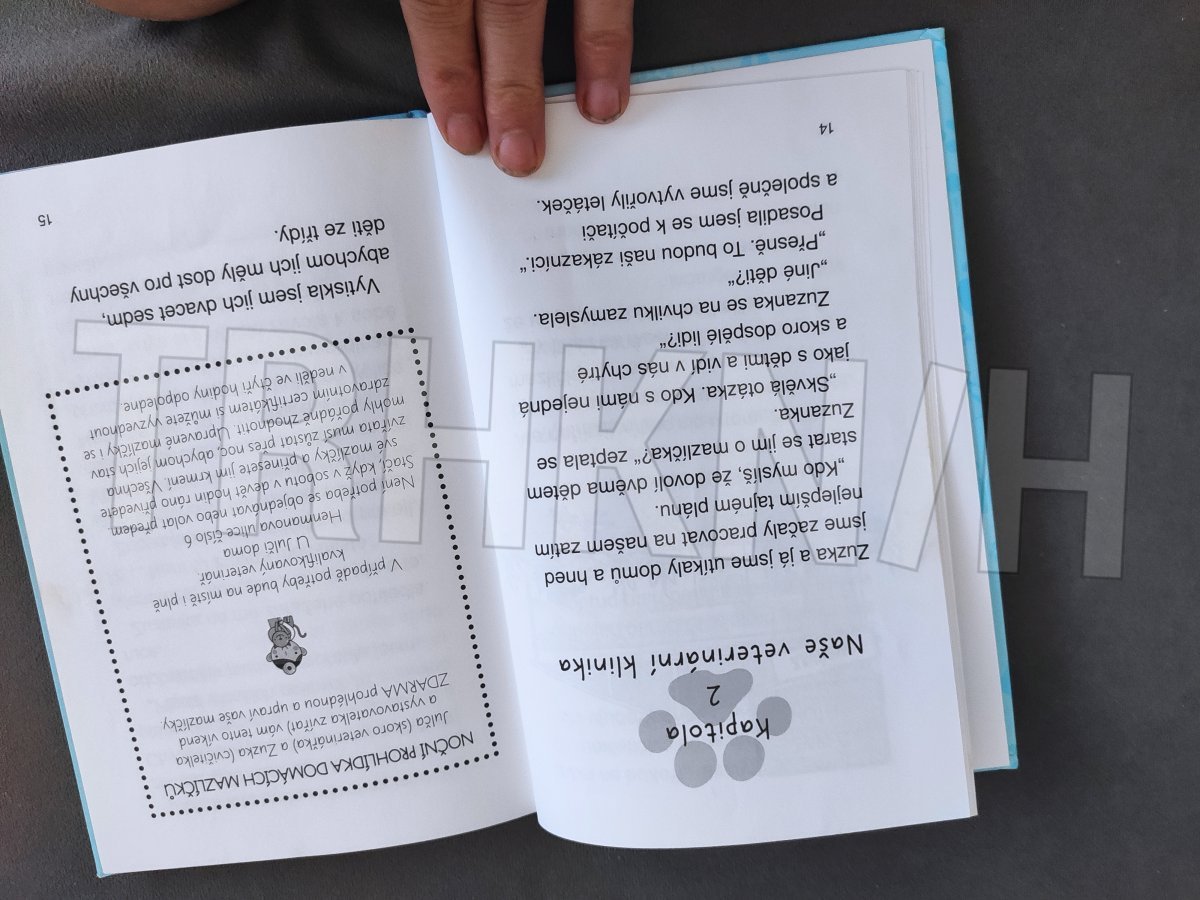 Kapitola
2
Naše veterinární klinika
Zuzka a já jsme utíkaly domů a hned
jsme začaly pracovat na našem zatím
nejlepším tajném plánu.
„Kdo myslíš, že dovolí dvěma dětem
starat se jim o mazlíčka?“ zeptala se
Zuzanka.
„Skvělá otázka. Kdo s námi nejedná
jako s dětmi a vidí v nás chytré
a skoro dospělé lidi?“
Zuzanka se na chvilku zamyslela.
„Jiné děti?“
„Přesně. To budou naši zákazníci.“
Posadila jsem se k počítači
a společně jsme vytvořily letáček.
14
NOČNÍ PROHLÍDKA DOMÁCÍCH MAZLÍČKŮ
Julča (skoro veterinářka) a Zuzka (cvičitelka
a vystavovatelka zvířat) vám tento víkend
ZDARMA prohlédnou a upraví vaše mazlíčky
V případě potřeby bude na místě i plně
kvalifikovaný veterinář
U Julči doma
Henmanova ulice číslo 6
Není potřeba se objednávat nebo volat předem.
Stačí, když v sobotu v devět hodin ráno přivedete
své mazlíčky a přinesete jim krmení. Všechna
zvířata musí zůstat přes noc, abychom jejich stav
mohly pořádně zhodnotit. Upravené mazlíčky i se
zdravotním certifikátem si můžete vyzvednout
v neděli ve čtyři hodiny odpoledne.
Vytiskla jsem jich dvacet sedm,
abychom jich měly dost pro všechny
děti ze třídy.
15
TRHKNIH